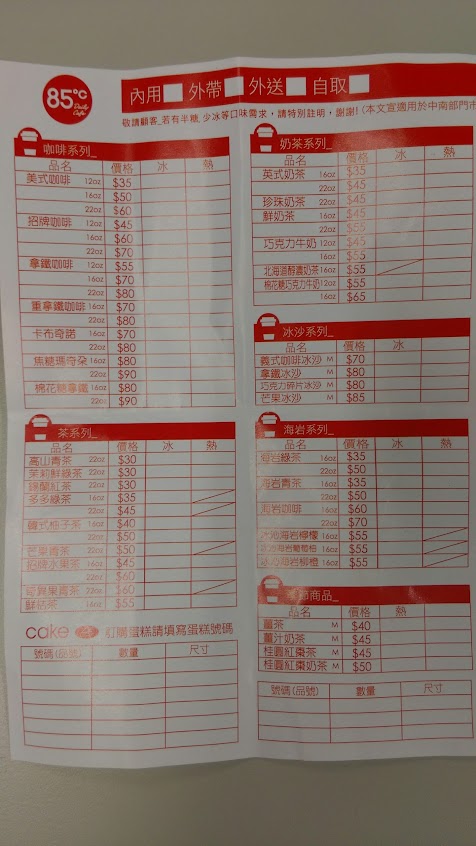 85°C
Daily Cafe
內用 外帶 外送 自取
敬請顧客,若有半糖,少冰等口味需求,請特別註明,謝謝!(本文宣適用於中南部門市
咖啡系列_
品名 價格 冰 熱
美式咖啡 12oz $35
16oz $50
22oz $60
招牌咖啡 12oz $45
16oz $60
22oz $70
拿鐵咖啡 12oz $55
16oz $70
22oz $80
重拿鐵咖啡 16oz $70
22oz $80
卡布奇諾 16oz $70
22oz $80
焦糖瑪奇朵 16oz $80
22oz $90
棉花糖拿鐵 16oz $80
22oz $90
茶系列_
品名 價格 冰 熱
高山青茶 22oz $30
茉莉鮮綠茶 22oz $30
錫蘭紅茶 22oz $30
多多綠茶 16oz $35
22oz $45
韓式柚子茶 16oz $40
22oz $50
芒果青茶 22oz $50
招牌水果茶 16oz $45
22oz $60
百香果青茶 22oz $60
鮮桔茶 16oz $55
cake 訂購蛋糕請填寫蛋糕號碼
號碼(品號) 數量 尺寸
奶茶系列_
品名 價格 冰 熱
英式奶茶 16oz $35
22oz $45
珍珠奶茶 22oz $45
鮮奶茶 16oz $45
22oz $55
巧克力牛奶 12oz $45
16oz $55
北海道醇濃奶茶 16oz $55
棉花糖巧克力牛奶 12oz $55
16oz $65
冰沙系列_
品名 價格 冰
義式咖啡冰沙 M $70
拿鐵冰沙 M $80
巧克力碎片冰沙 M $80
芒果冰沙 M $85
海岩系列_
品名 價格 冰 熱
海岩綠茶 16oz $35
22oz $50
海岩青茶 16oz $35
22oz $50
海岩咖啡 16oz $60
22oz $70
冰池海岩檸檬 16oz $55
冰池海岩葡萄柚 16oz $55
冰池海岩柳橙 16oz $55
季節商品_
品名 價格 熱
薑茶 M $40
薑汁奶茶 M $45
桂圓紅棗茶 M $45
桂圓紅棗奶茶 M $50
號碼(品號) 數量 尺寸